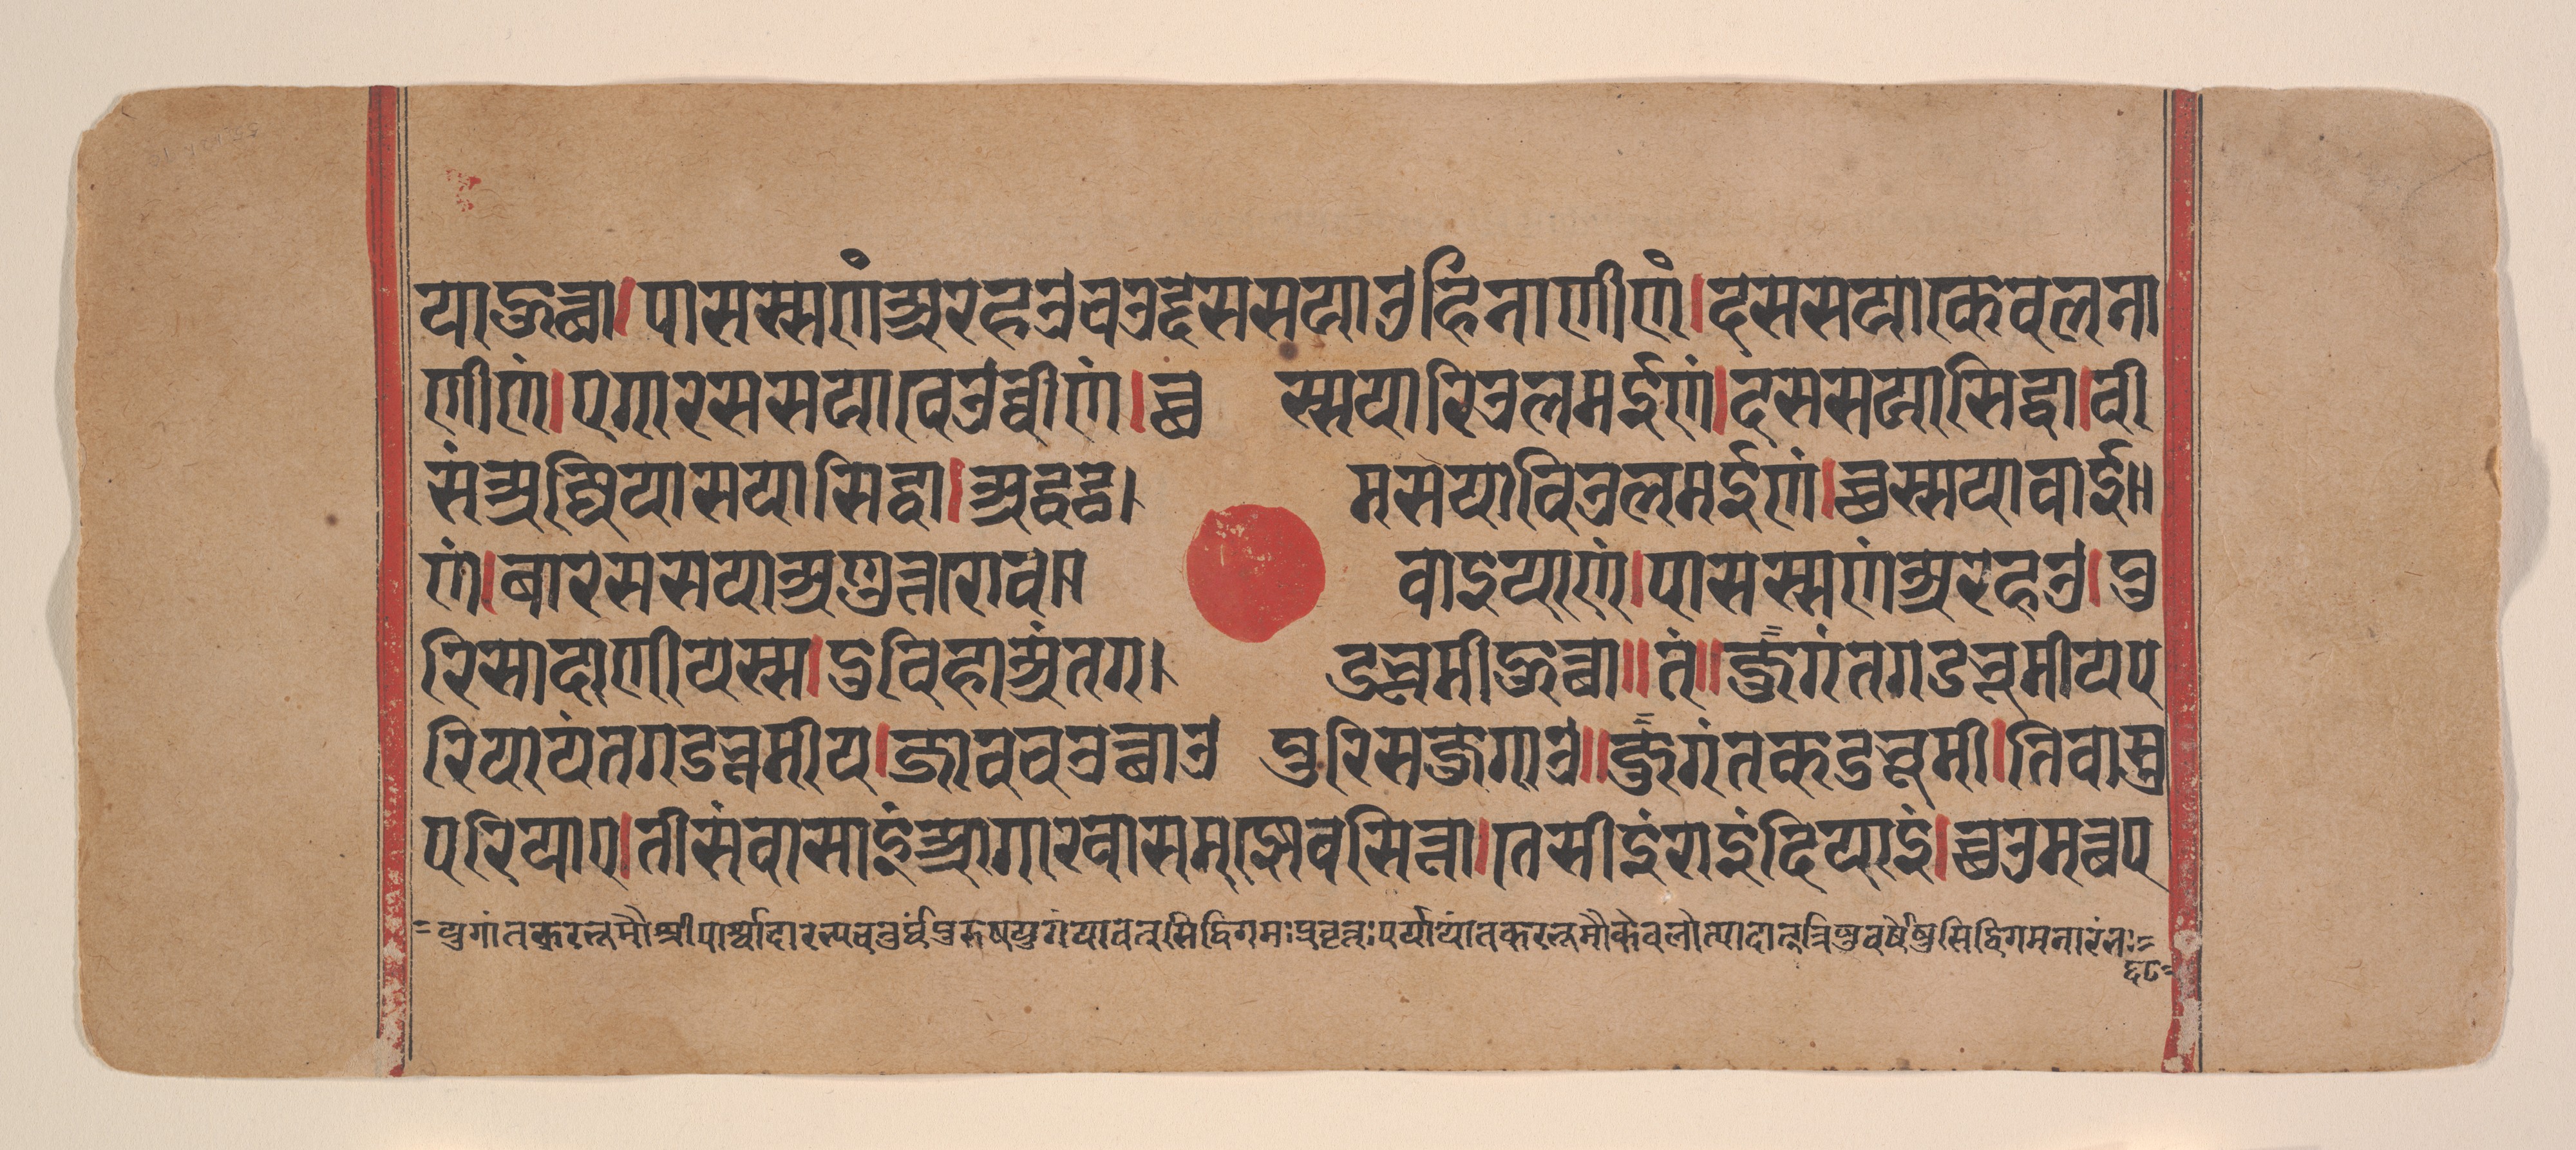 याहुत्था।पासस्सणंअरहउचउद्दससयाउहिनाणीणं।दससयाकेवलना
णीणं।एगारससयावेउव्वीणं।छ स्सयारिउलमईणं।दससयासिद्धा।वी
संअज्जियासयासिद्धा।अद्धट्ठ। मसयाविउलमईणं।छस्सयावाई॥
णं।बारससयाअणुत्तरोव॥ वाइयाणं।पासस्सणंअरहउ।पु
रिसादाणीयस्स।दुविहाअंतग। डभूमीहुत्था॥तं॥जुगंतगडभूमीयप
रियायंतगडभूमीय।जावचउत्थाउ पुरिसजुगाउ॥जुगंतकडभूमी।तिवास
परियाए।तीसंवासाइंअगारवासमज्झेवसित्ता।तेसीइंराइंदियाइं।छउमत्थप
=युगांतकरभूमौश्रीपार्श्वादारभ्यचतुर्थंपुरुषयुगंयावत्सिद्धिगमःप्रवृत्तःपर्यायांतकरभूमौकेवलोत्पादात्त्रिषुवर्षेषुसिद्धिगमनारंभः=
६८=